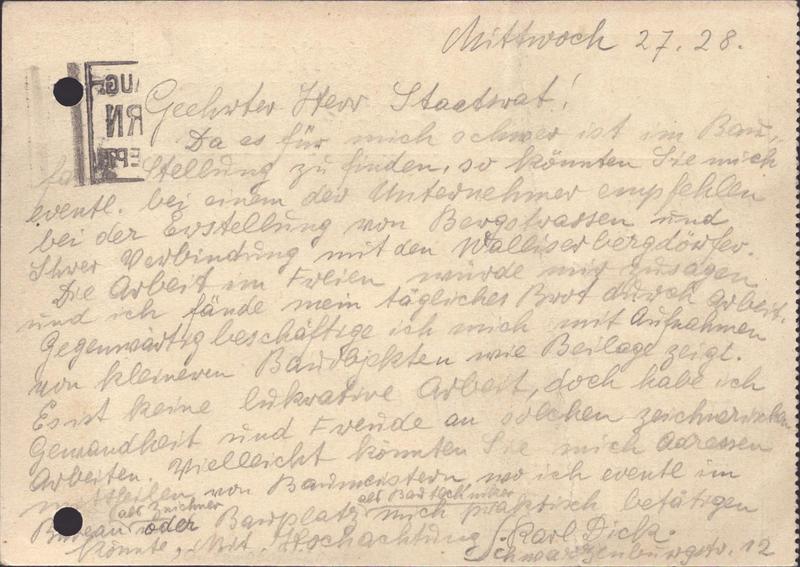 Mittwoch 27. 28.
Geehrter Herr Staatsrat!
Da es für mich schwer ist im Bau-
fa Stellung zu finden, so könnten Sie mich
eventl. bei einem der Unternehmer empfehlen
bei der Erstellung von Bergstrassen und
Ihrer Verbindung mit den Walliserbergdörfer.
Die Arbeit im Freien würde mir zusagen
und ich fände mein tägliches Brot durch Arbeit.
Gegenwärtig beschäftige ich mich mit Aufnahmen
von kleineren Bauobjekten wie Beilage zeigt.
Es ist keine lukrative Arbeit, doch habe ich
Gewandheit und Freude an solchen zeichnerischen
Arbeiten. Vielleicht könnten Sie mich Adressen
mitteilen von Baumeistern, wo ich eventl im
(als Zeichner als Bautechniker
Bureau oder Bauplatz mich praktisch betätigen
könnte, Mit Hochachtung Karl Dick.
Schwarzenburgstr. 12
AUG
RN
EP